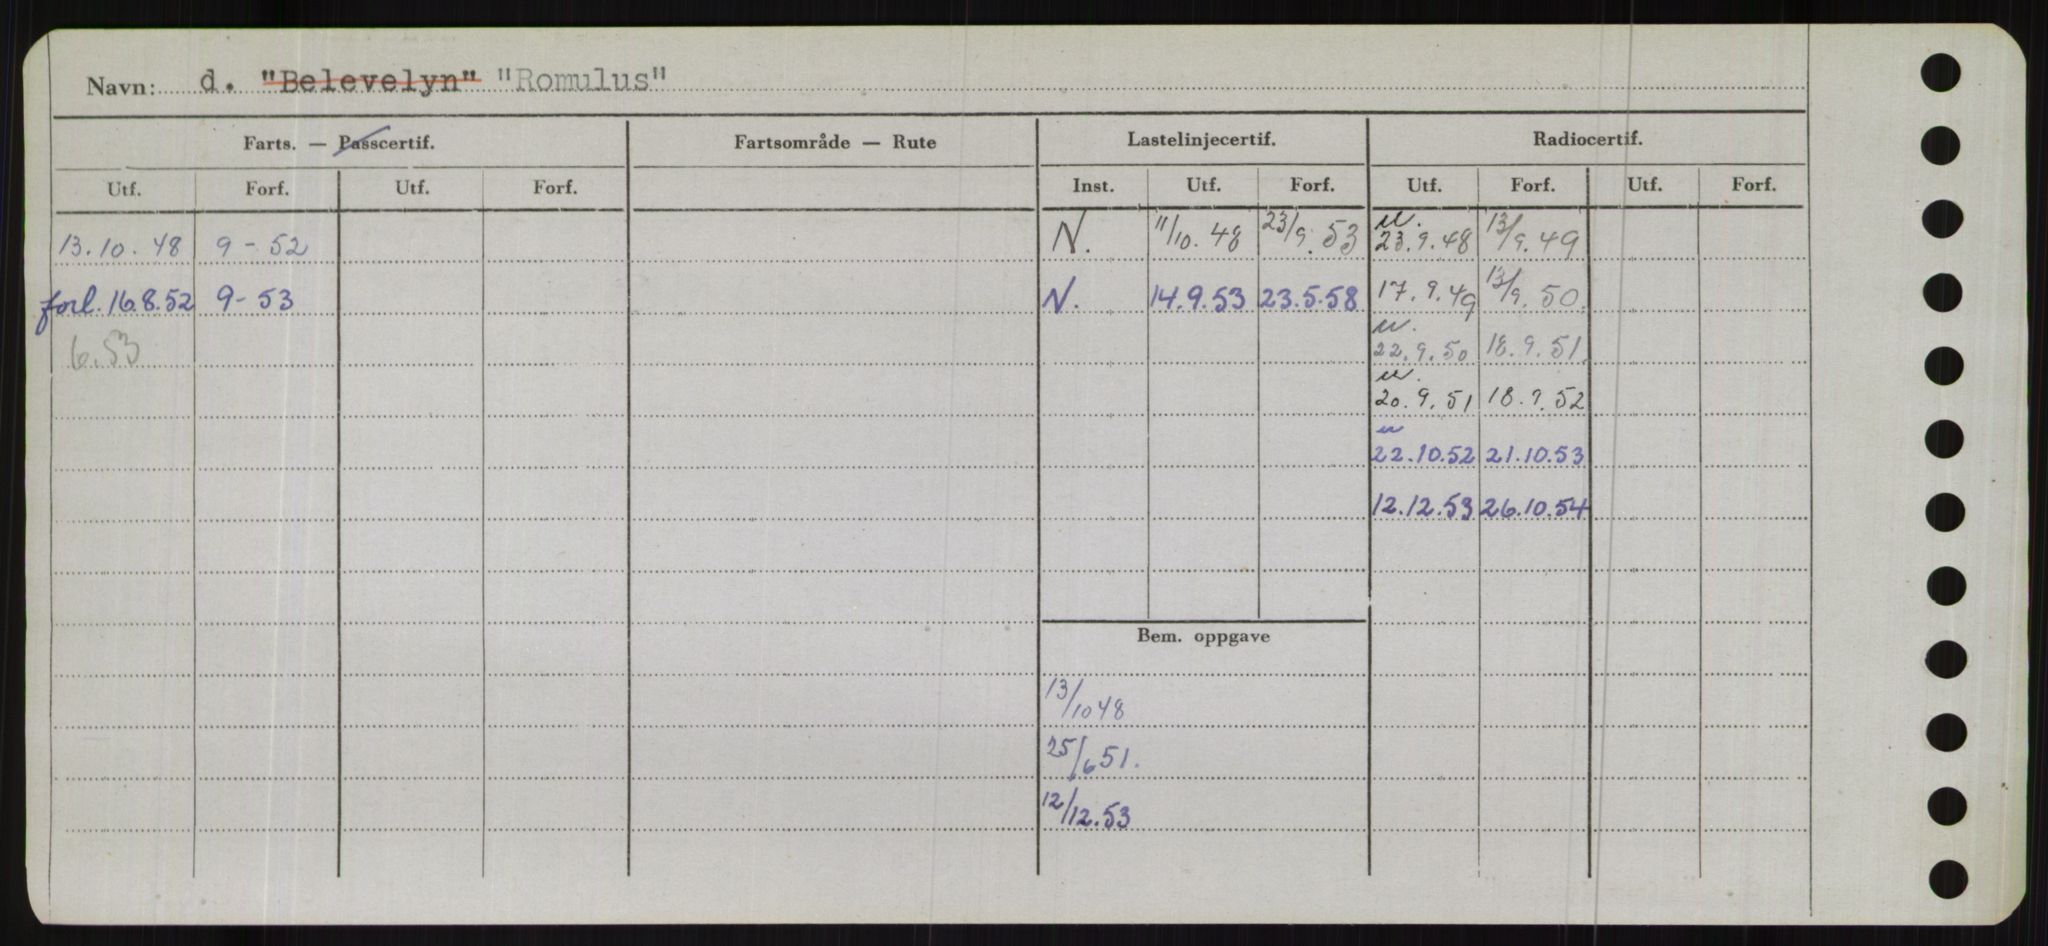 Navn: d. "Belevelyn" "Romulus"
Farts. — Passcertif. Fartsområde — Rute Lastelinjecertif. Radiocertif.
Utf. Forf. Utf. Forf. Inst. Utf. Forf. Utf. Forf. Utf. Forf.
13.10.48 9-52 N. 11/10.48 23/9.53 23.9.48 13/9.49
forl. 16.8.52 9-53 N. 14.9.53 23.5.58 17.9.49 13/9.50.
6.53 22.9.50 18.9.51.
20.9.51 18.9.52
22.10.52 21.10.53
12.12.53 26.10.54
Bem. oppgave
13/10 48
25/6 51.
12/12.53